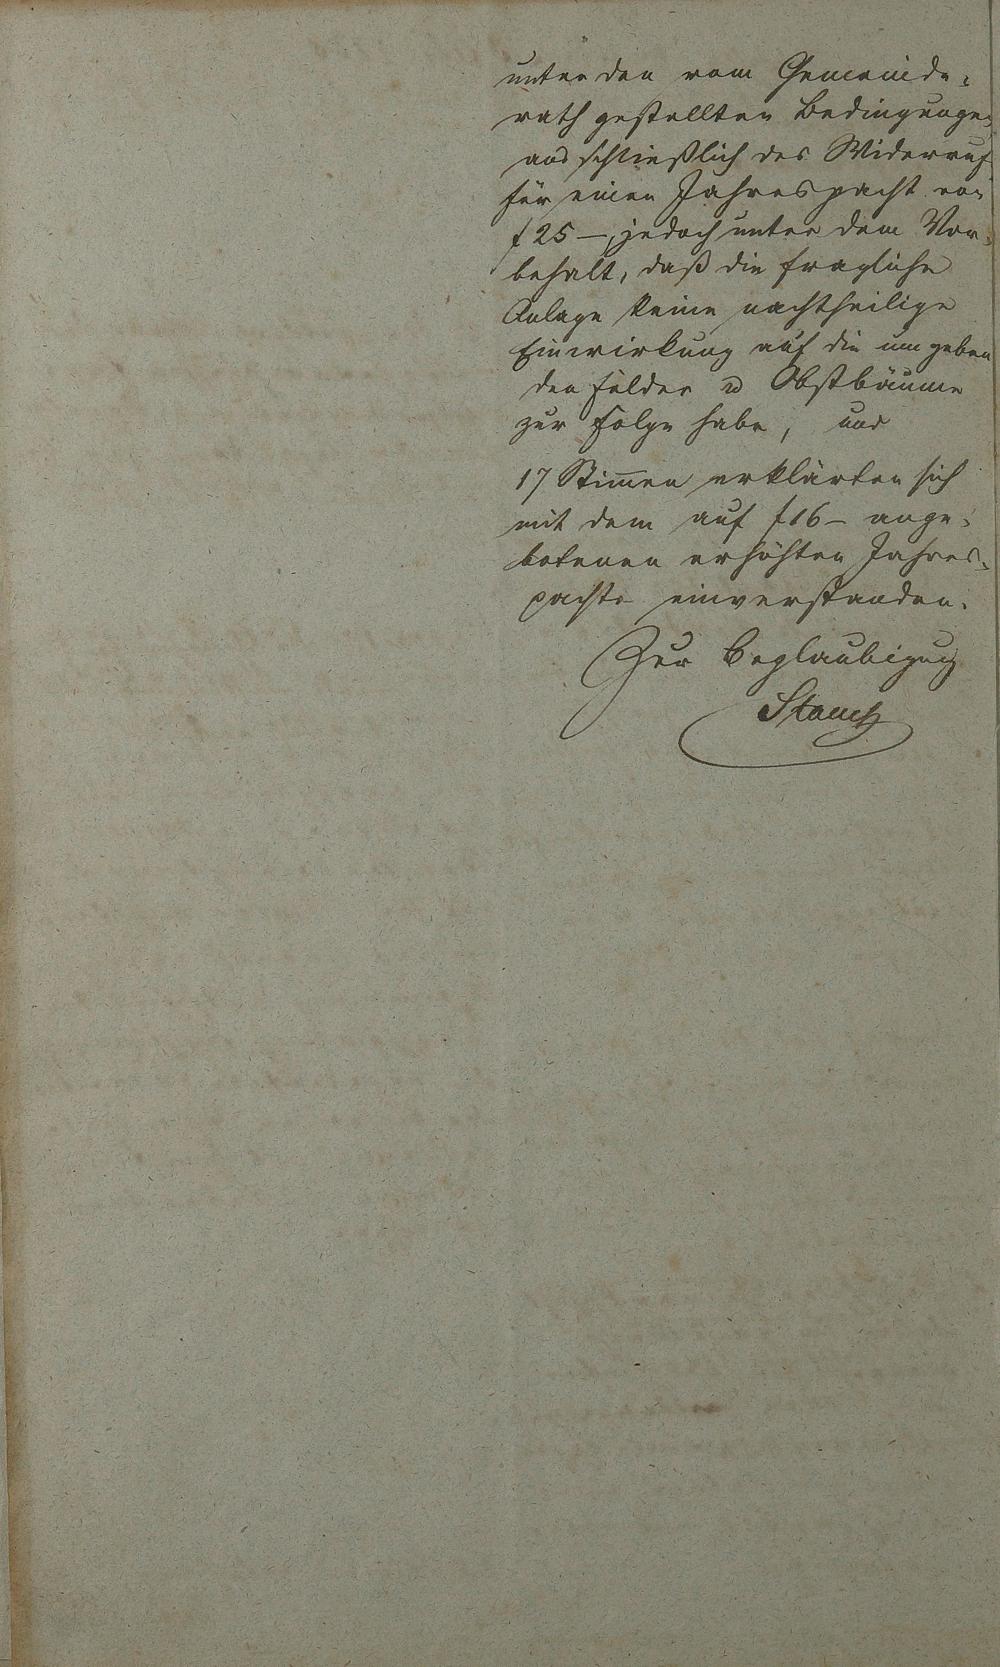 unter den vom Gemeinde-
rath gestellten Bedingungen
ausschließlich des Widerruf
für einen Jahrespacht von
f 25 —, jedoch unter dem Vor-
behalt, daß die fragliche
Anlage keine nachtheilige
Einwirkung auf die umgeben
den Felder u Obstbäume
zur Folge habe, und
17 Stim̄en erklärten sich
mit dem auf f 16 – ange-
botenen erhöhten Jahres-
pachte einverstanden.
Zur Beglaubigung